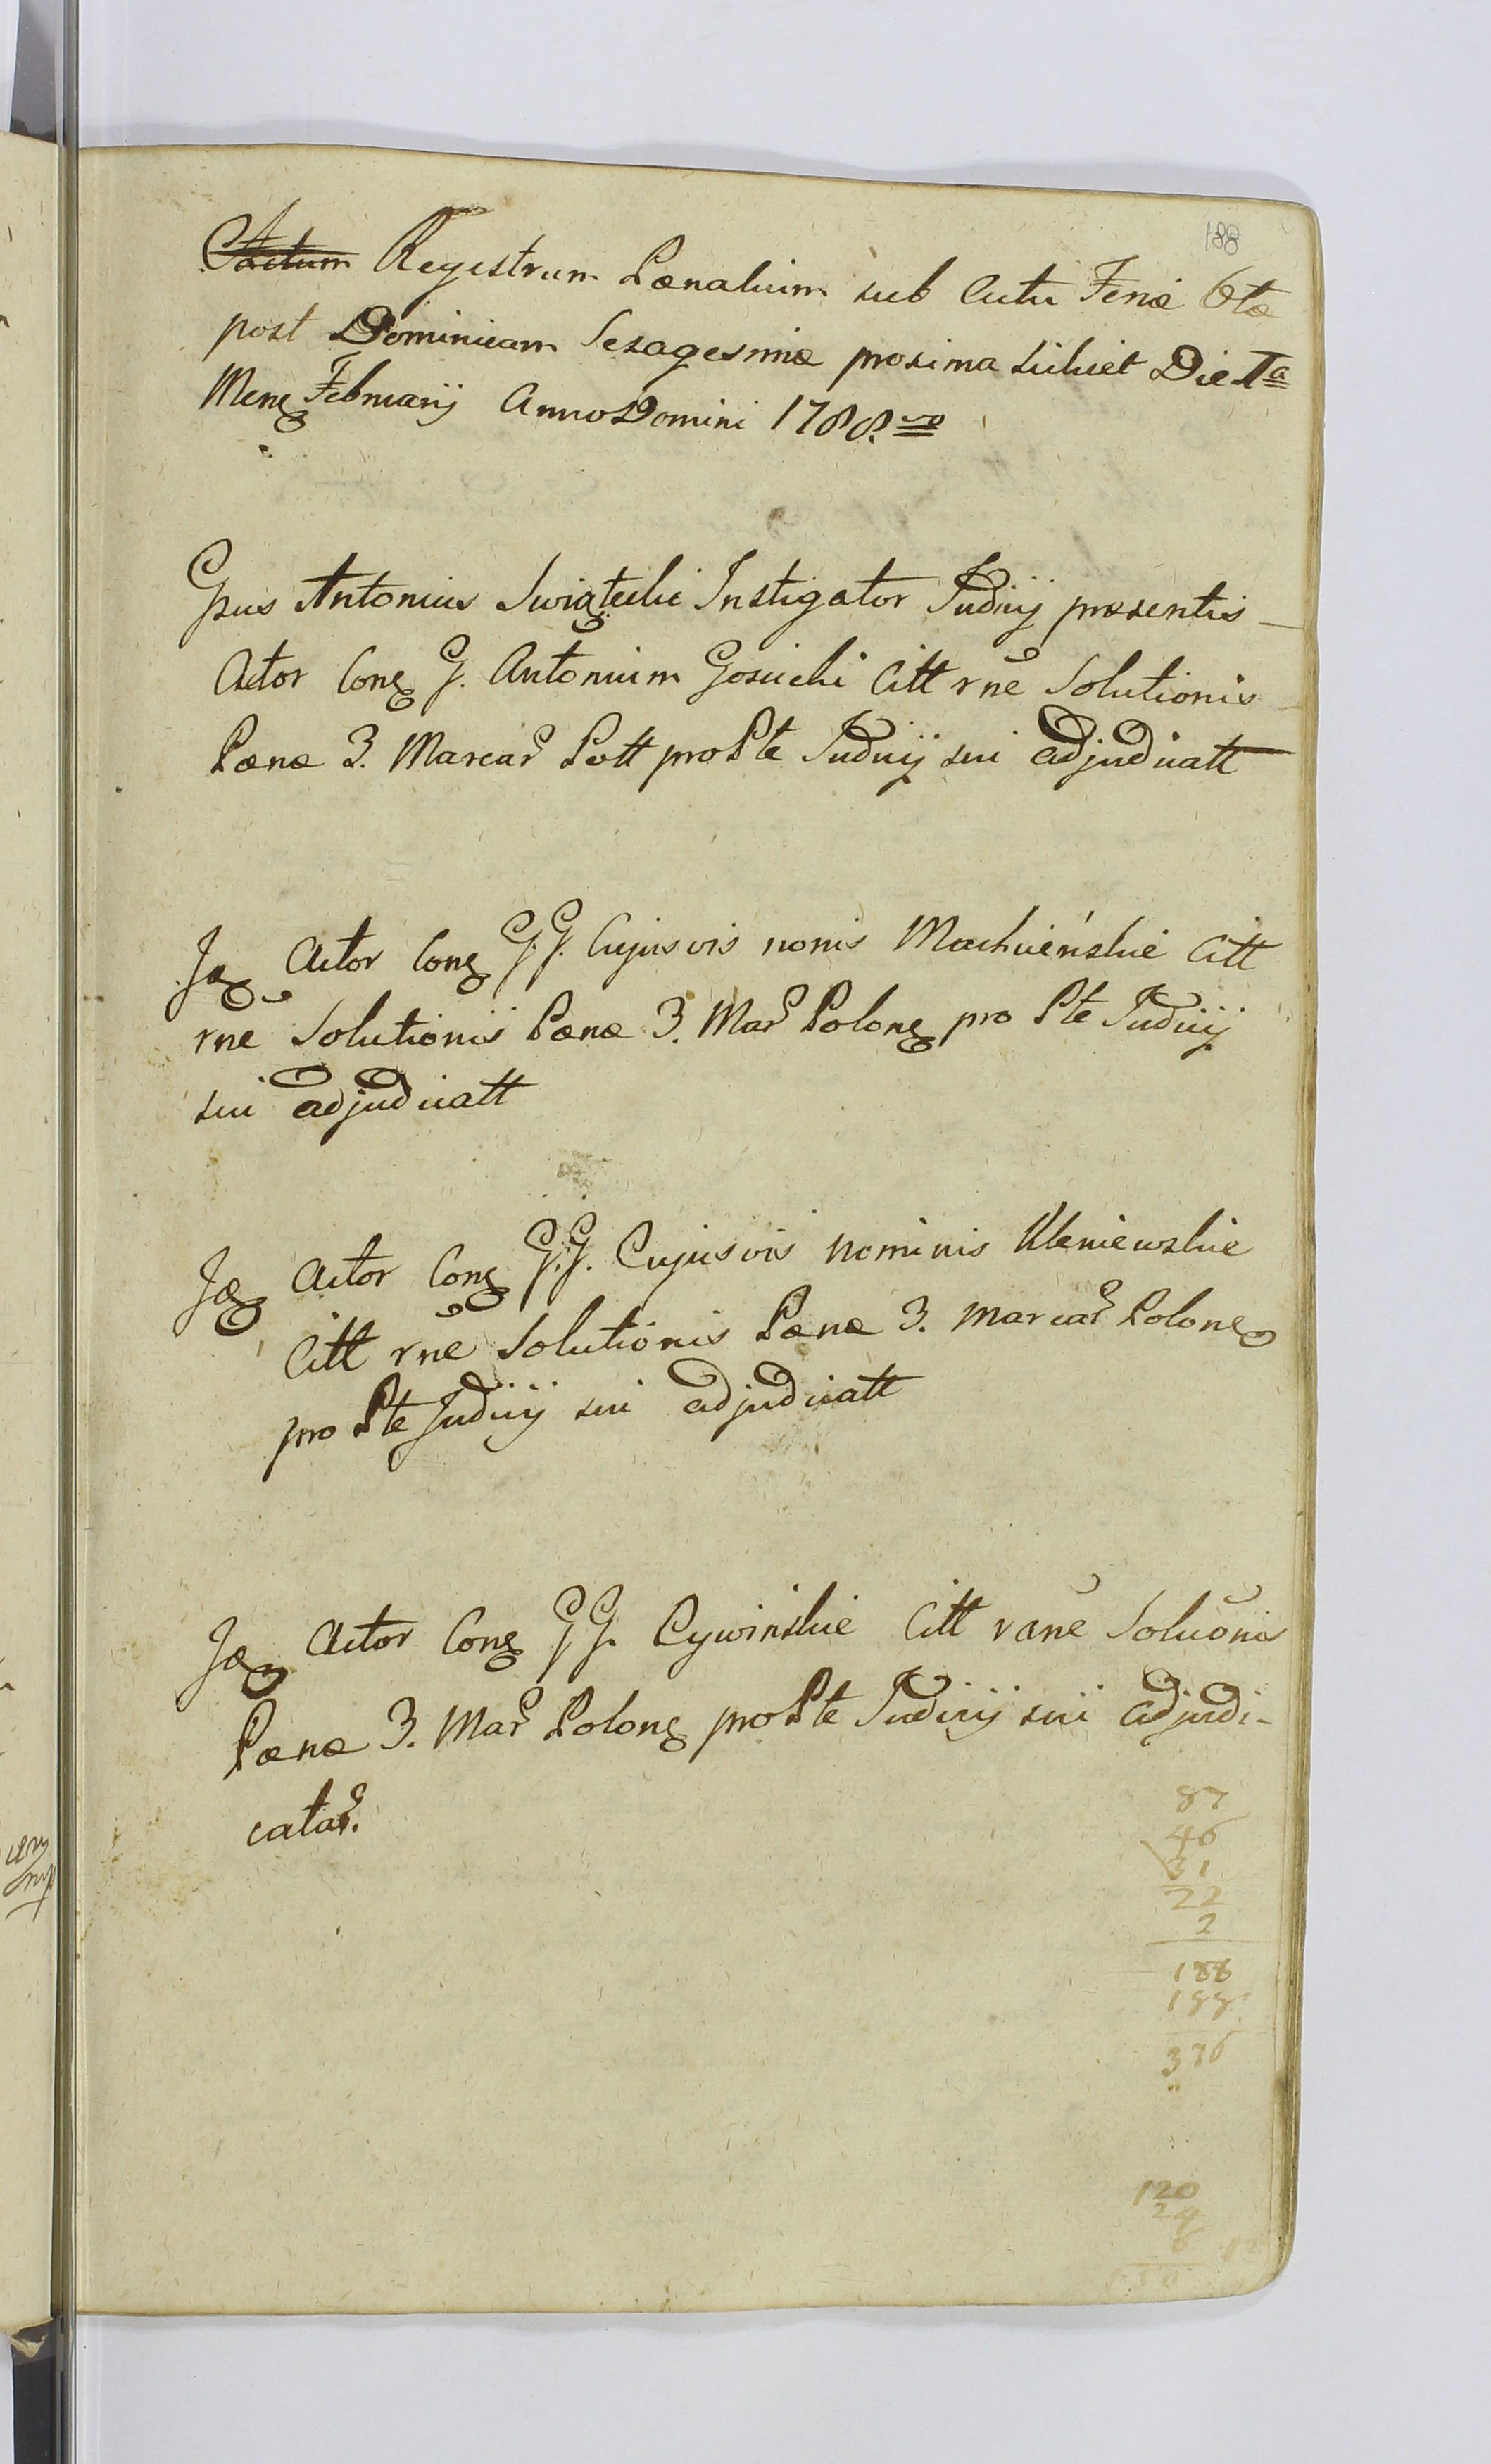 188
Actum Regestrum Pœnalium sub Actu Feriæ 6tæ
post Dominicam Sexagesimæ proxima scilicet Die 1a
Mens Februarij Anno Domini 1788.vo
Gsus Antonius Swiątecki Instigator Judicij præsentis
Actor Cong G. Antonium Gosicki Citt rne Solutionis
Pænæ 3. Marcar Poll pro Pte Judicij sui adjudicatt
Actor Cong GG. Cujusvis nonis Machcieńskie Citt
rne Solutionis Pænæ 3. Mar Polong pro Pte Judicij
sui adjudicatt
Actor Cong G.G. Cujusvis nominis Kleniewskie
Citt rne Solutionis Pænæ 3. Marcar Polong
pro Pte Judicij sui adjudicatt
Actor Cong GG. Cywinskie Citt rane Soluonis
Pænæ 3. Mar Polong pro Pte Judicij sui adjudi-
catar.
87
46
31
22
2
188
188
376
120
29